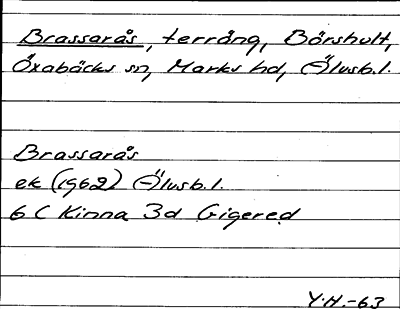 Brassarås, terräng, Börshult,
Öxabäcks sn, Marks hd, Älvsb.l.
Brassarås
ek (1962) Älvsb.l.
6 C Kinna 3d Gigered
Y.H.-63